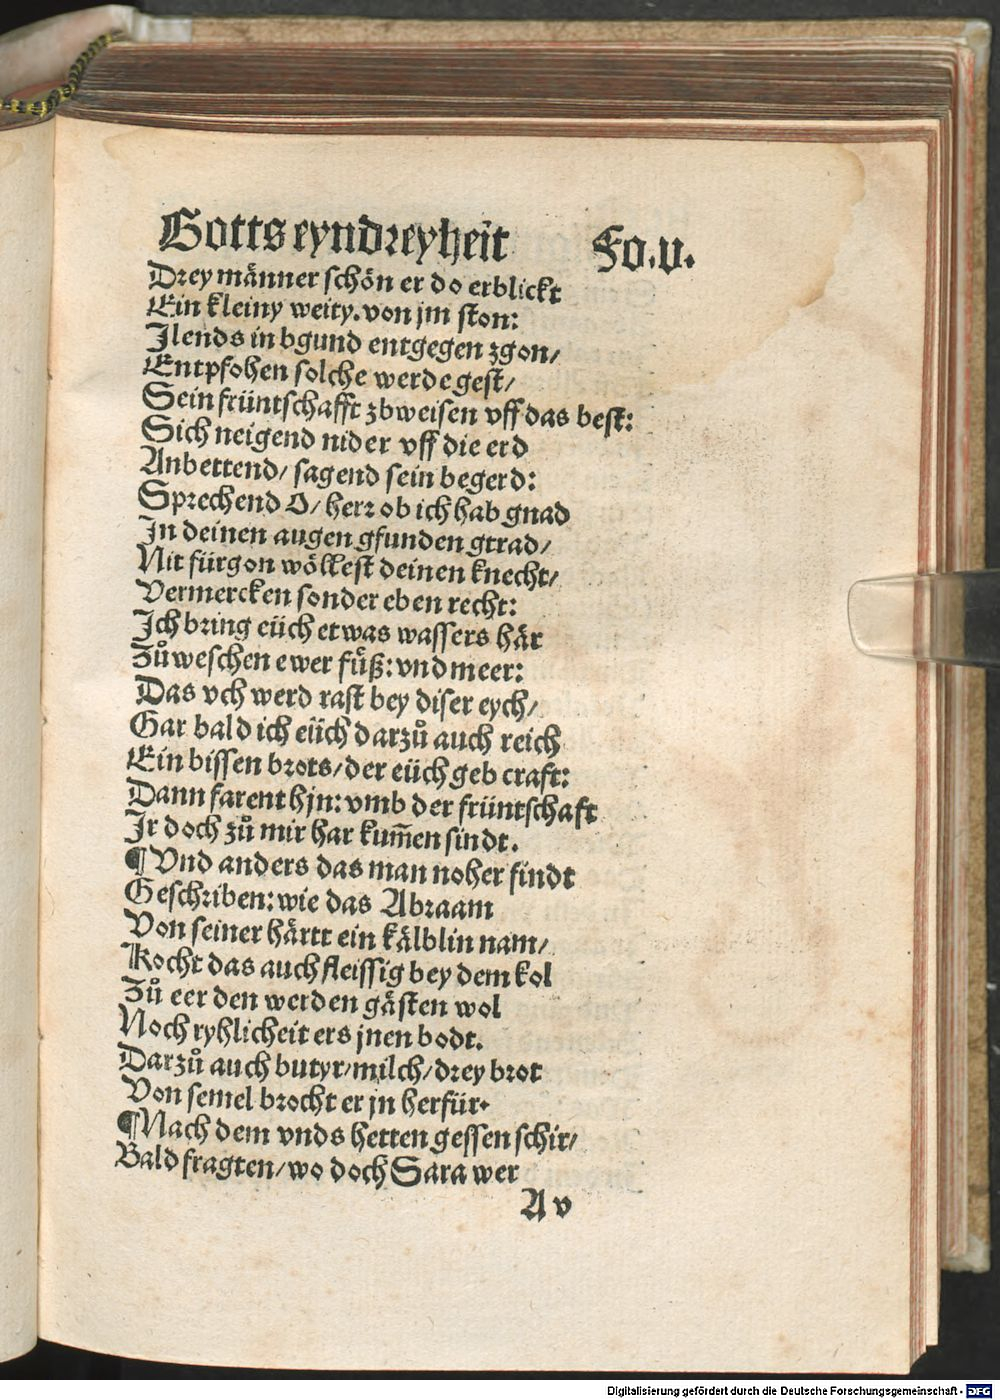 Gotts eyndreyheit Fo.v.
Drey männer schön er do erblickt
Ein kleiny weity. von jm ston:
Ilends in bgund entgegen zgon/
Entpfohen solche werde gest/
Sein früntschafft zbweisen vff das best:
Sich neigend nider vff die erd
Anbettend/ sagend sein begerd:
Sprechend O/ herr ob ich hab gnad
In deinen augen gfunden gtrad/
Nit fürgon wöllest deinen knecht/
Vermercken sonder eben recht:
Ich bring eüch etwas wassers här
Zů weschen ewer füß: vnd meer:
Das vch werd rast bey diser eych/
Gar bald ich eüch darzů auch reich
Ein bissen brots/ der eüch geb craft:
Dann farent hjn: vmb der früntschaft
Ir doch zů mir har kum̄en sindt.
¶ Vnd anders das man noher findt
Geschriben: wie das Abraam
Von seiner härtt ein kälblin nam/
Kocht das auch fleissig bey dem kol
Zů eer den werden gästen wol
Noch ryhlicheit ers jnen bodt.
Darzů auch butyr/ milch/ drey brot
Von semel brocht er jn herfür.
¶ Nach dem vnds hetten gessen schir/
Bald fragten/ wo doch Sara wer
A v
Digitalisierung gefördert durch die Deutsche Forschungsgemeinschaft - DFG